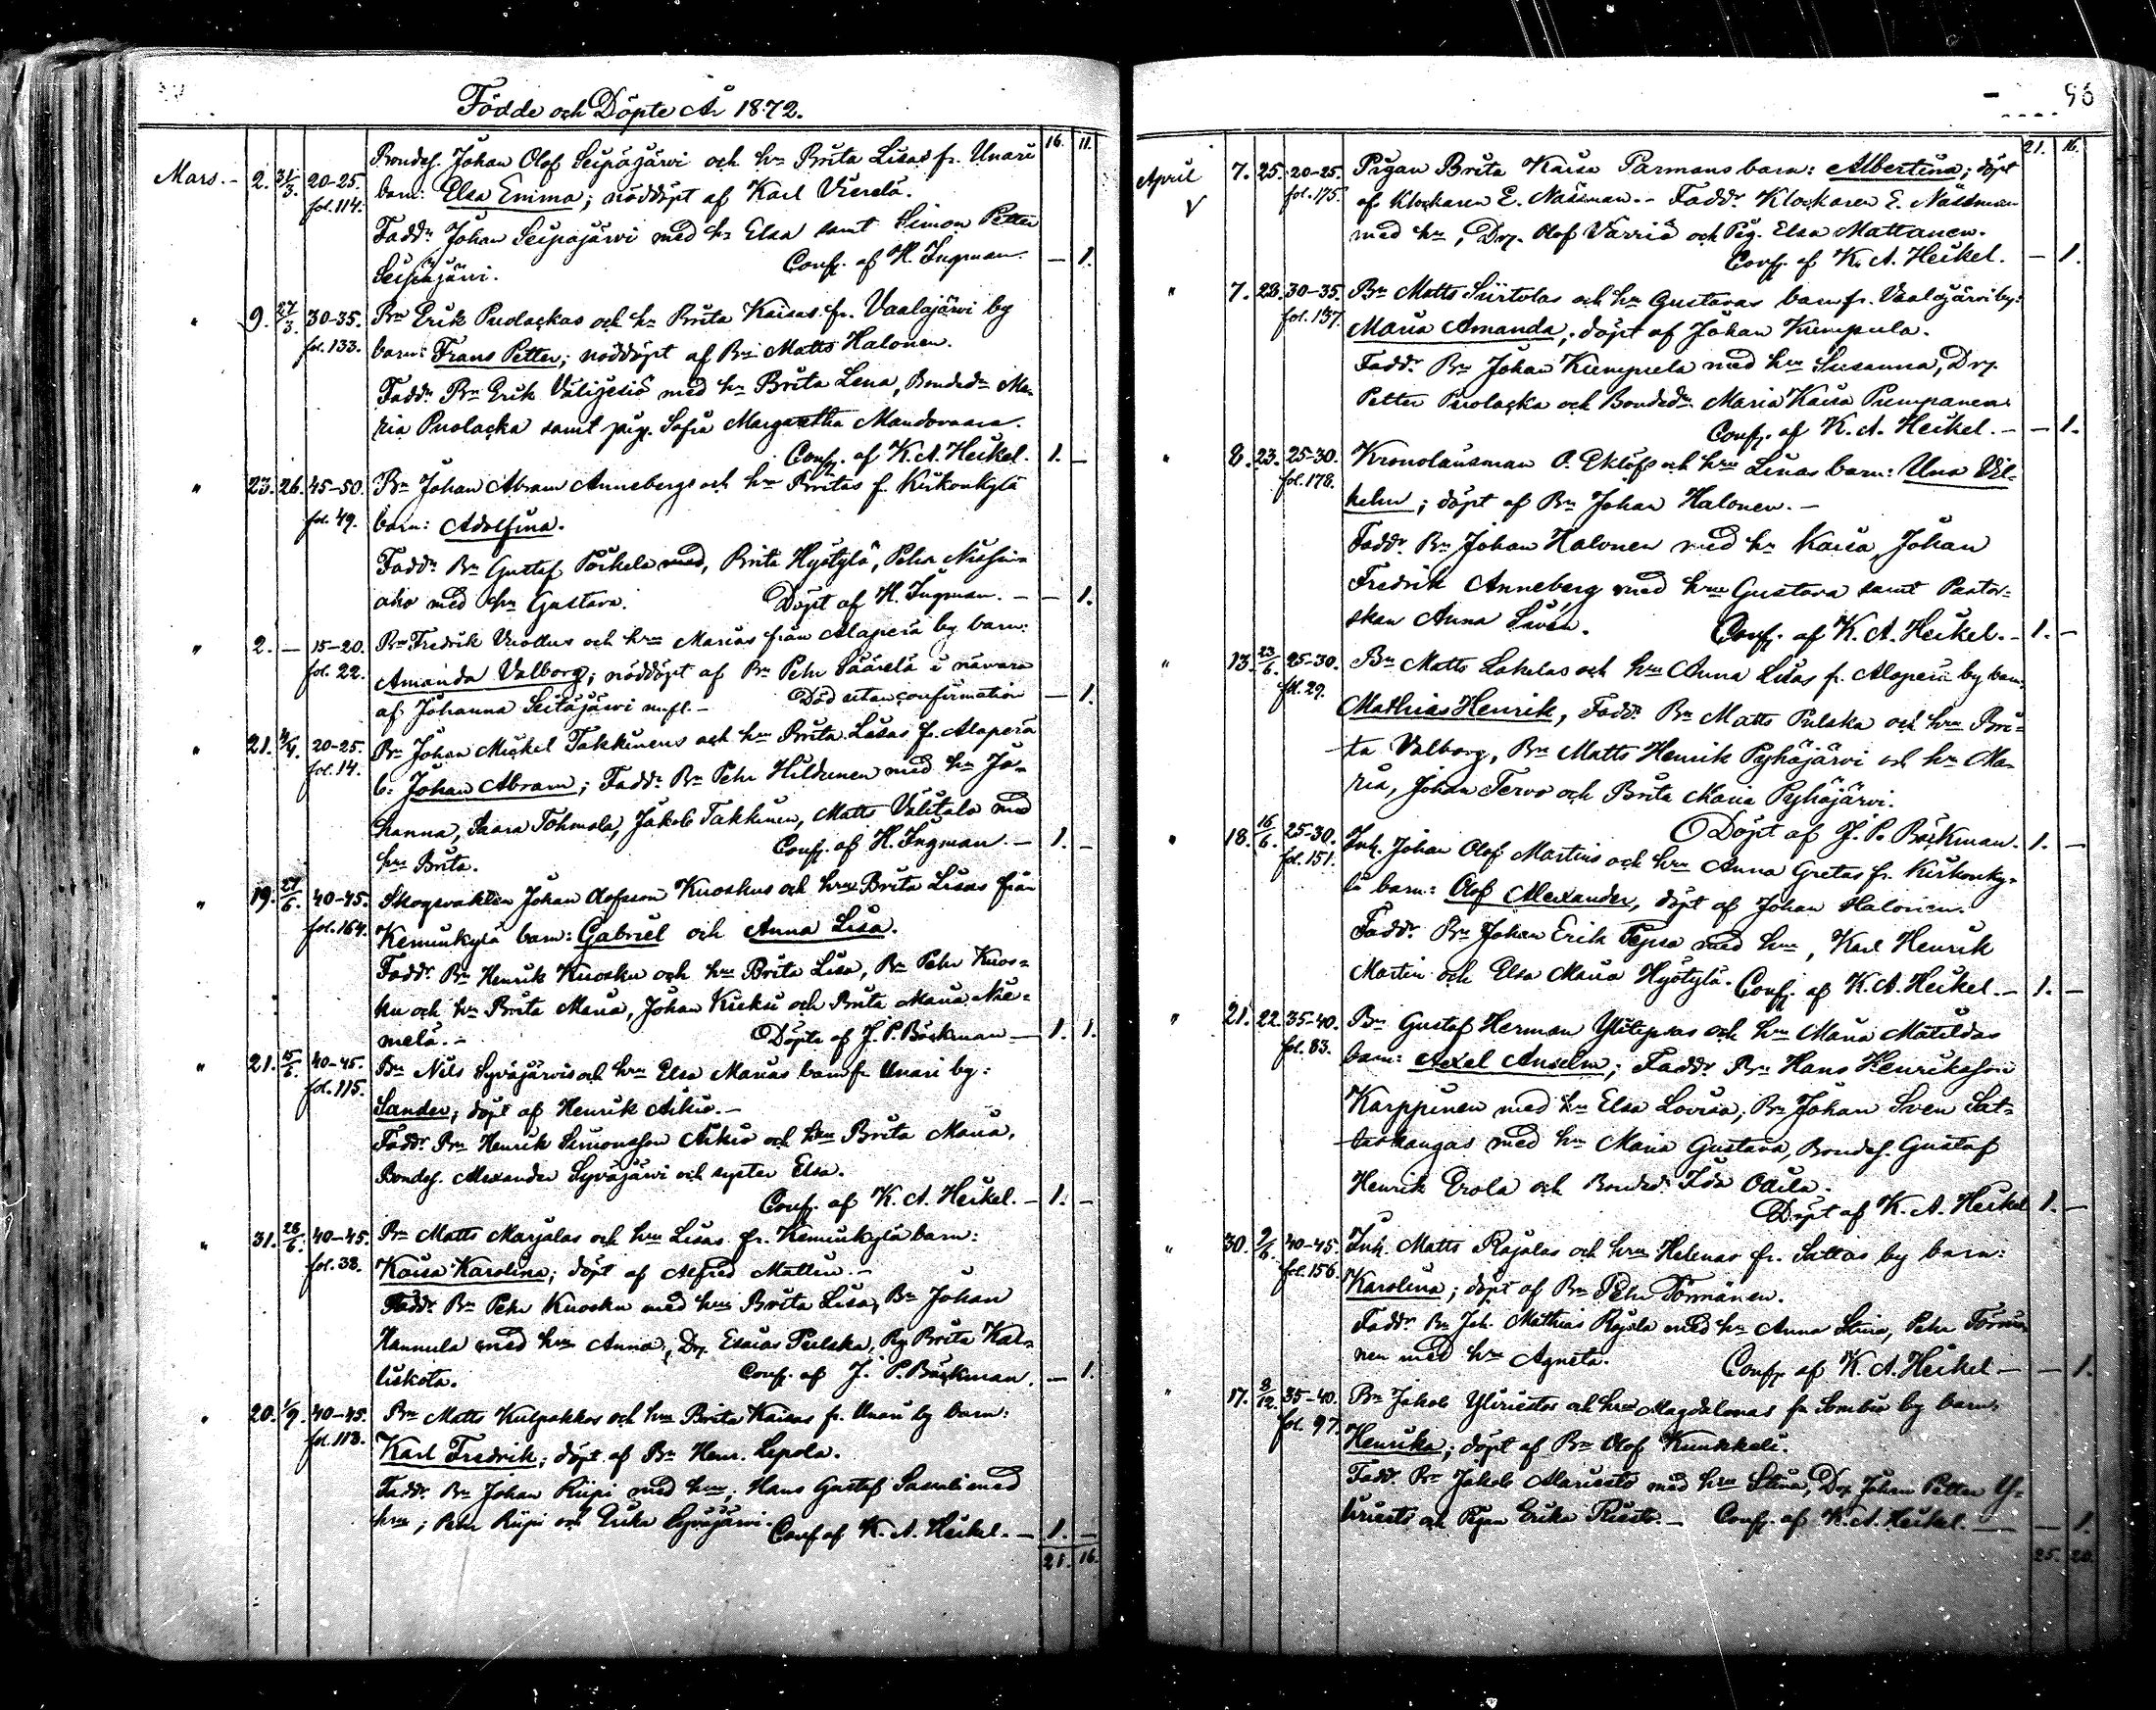 Födde och Döpte År 1872.
16. 11.
Mars. - 2. 31/3. 20-25. fol. 114. Bondes. Johan Olof Seipäjärvi och hu Brita Lisas fr. Unari
barn: Elsa Emma; nöddöpt af Karl Vierelä.
Fadd. Johan Seipäjärvi med h. Elsa samt Simon Petter
Seipäjärvi. Conf. af H. Ingman. - 1.
" 9. 27/3. 30-35. fol. 133. Bn Erik Puolackas och h. Brita Kaisas fr. Vaalajärvi by
barn: Frans Petter; nöddöpt af Bn Matts Halonen.
Fadd. Bn Erik Välijesiö med hu Brita Lena, Bonded. Ma-
ria Puolacka samt pig. Sofia Margaretha Mandovaara.
Conf. af K. A. Heikel. 1. -
" 23. 26. 45-50. fol. 49. Bn Johan Abram Annebergs och hu Britas f. Kirkonkylä
barn: Adolfina.
Fadd. Bn Gustaf Pöckela med, Brita Hyötylä, Petter
aho med hu Gustava. Döpt af H. Ingman. - - 1.
" 2. - 15-20. fol. 22. Bn Fredrik Vuollus och hu Marias från Alaperä by barn:
Amanda Valborg; nöddöpt af Bn Pehr Säärelä i närvaro
af Johanna Seitäjärvi m.fl. - Död utan confirmation - 1.
" 21. 4/4. 20-25. fol. 14. Bn Johan Mickel Takkinens och hu Brita Lisas fr. Alaperä
b: Johan Abram; Fadd. Bn Pehr Hildunen med hu Jo-
hanna, Saara Tohmola, Jakob Takkinen, Matts Välitalo med
hu Brita. Conf. af H. Ingman. - 1. -
" 19. 27/6. 40-45. fol. 164. Skogsvakten Johan Olofsson Kuoskus och hu Brita Lisas från
Kemunkylä barn: Gabriel och Anna Lisa.
Fadd. Bn Henrik Kuosku och hu Brita Lisa, Bn Pehr Kuos-
ku och hu Brita Maria, Johan Kieksi och Brita Maria Nie-
melä. - Döpte af J. P. Bäckman - 1. 1.
" 21. 15/6. 40-45. fol. 115. Bn Nils Syväjärvis och hu Elsa Marias barn fr. Unari by:
Sander; döpt af Henrik Aikio. -
Fadd. Bn Henrik Simonsson Aikio och hu Brita Maria,
Bondes. Alexander Syväjärvi och syster Elsa.
Conf. af K. A. Heikel. - 1. -
" 31. 28/6. 40-45. fol. 38. Bn Matts Marjalas och hu Lisas fr. Kemunkylä barn:
Kaisa Karolina; döpt af Alfred Matlin. -
Fadd. Bn Pehr Kuosku med hu Brita Lisa, Bn Johan
Hannula med hu Anna, Dr. Esaias Pulska, Pig Brita Kal-
liskota. Conf. af J. P. Bäckman. - 1.
" 20. 1/9. 40-45. fol. 118. Bn Matts Kulpakkos och hu Brita Kaisas fr. Unari by barn:
Karl Fredrik; döpt af Bn Henr. Lepola.
Fadd. Bn Johan Riipi med hu; Hans Gustaf Sassali med
hu; Pehr Riipi och Erika Syväjärvi. Conf af K. A. Heikel. - 1. -
21. 16.
96
21. 16.
April 7. 25. 20-25. fol. 175. Pigan Brita Kaisa Parmans barn: Albertina; döpt
af Klockaren E. Nässman. - Fadd. Klockaren E. Nässman
med hu, Drg. Olof Värriö och Pig. Elsa Mattanen.
Conf. af K. A. Heikel. - 1.
" 7. 28. 30-35. fol. 137. Bn Matts Siirtolas och hu Gustavas barn fr. Vaalajärvi by:
Maria Amanda, döpt af Johan Kumpula.
Fadd. Bn Johan Kumpula med hu Susanna, Drg.
Petter Puolacka och Bonded. Maria Kaisa Pumpanen.
Conf. af K. A. Heikel. - - 1.
" 8. 23. 25-30. fol. 178. Kronolänsman O. Eklöfs och hu Linas barn: Uno Vil-
helm; döpt af Bn Johan Halonen. -
Fadd. Bn Johan Halonen med h. Kaisa, Johan
Fredrik Anneberg med hu Gustava samt Pastor-
skan Anna Lavén. Conf. af K. A. Heikel. - 1. -
" 13. 23/6. 25-30. fol. 29. Bn Matts Lakelas och hu Anna Lisas fr. Alaperä by barn:
Mathias Henrik, Fadd. Bn Matts Pulska och hu Bri-
ta Valborg, Bn Matts Henrik Pyhäjärvi och hu Ma-
ria, Johan Tervo och Brita Maria Pyhäjärvi.
Döpt af J. P. Bäckman. 1. -
" 18. 16/6. 25-30. fol. 151. Inh. Johan Olof Martins och hu Anna Gretas fr. Kirkonky-
lä barn: Olof Alexander, döpt af Johan Halonen.
Fadd. Bn Johan Erik Tepsa med hu, Karl Henrik
Martin och Elsa Maria Hyötylä. Conf. af K. A. Heikel. - 1. -
" 21. 22. 35-40. fol. 83. Bn Gustaf Herman Ylitepsas och hu Maria Matildas
barn: Axel Anselm; Fadd. Bn Hans Henriksson
Karppinen med hu Elsa Lovisa; Bn Johan Sven Sat-
taskangas med hu Maria Gustava, Bondes. Gustaf
Henrik Erola och Bonded. Ida Odila.
Döpt af K. A. Heikel 1. -
" 30. 9/6. 40-45. fol. 156. Inh. Matts Rajalas och hu Helenas fr. Sattas by barn:
Karolina; döpt af Bn Pehr Törmänen.
Fadd. Bn Joh. Mathias Rajala med hu Anna Stina, Pehr Törmä-
nen med hu Agneta. Conf. af K. A. Heikel - - 1.
" 17. 8/12. 35-40. fol. 97. Bn Jakob Yliriestos och hu Magdalenas fr. Sombio by barn:
Henrika; döpt af Bn Olof Kunskeli.
Fadd. Bn Jakob Alariesto med hu Stina, Drg. Johan Petter Y-
liriesto och Pigan Erika Riesto. - Conf. af K. A. Heikel. - - 1.
25. 20.